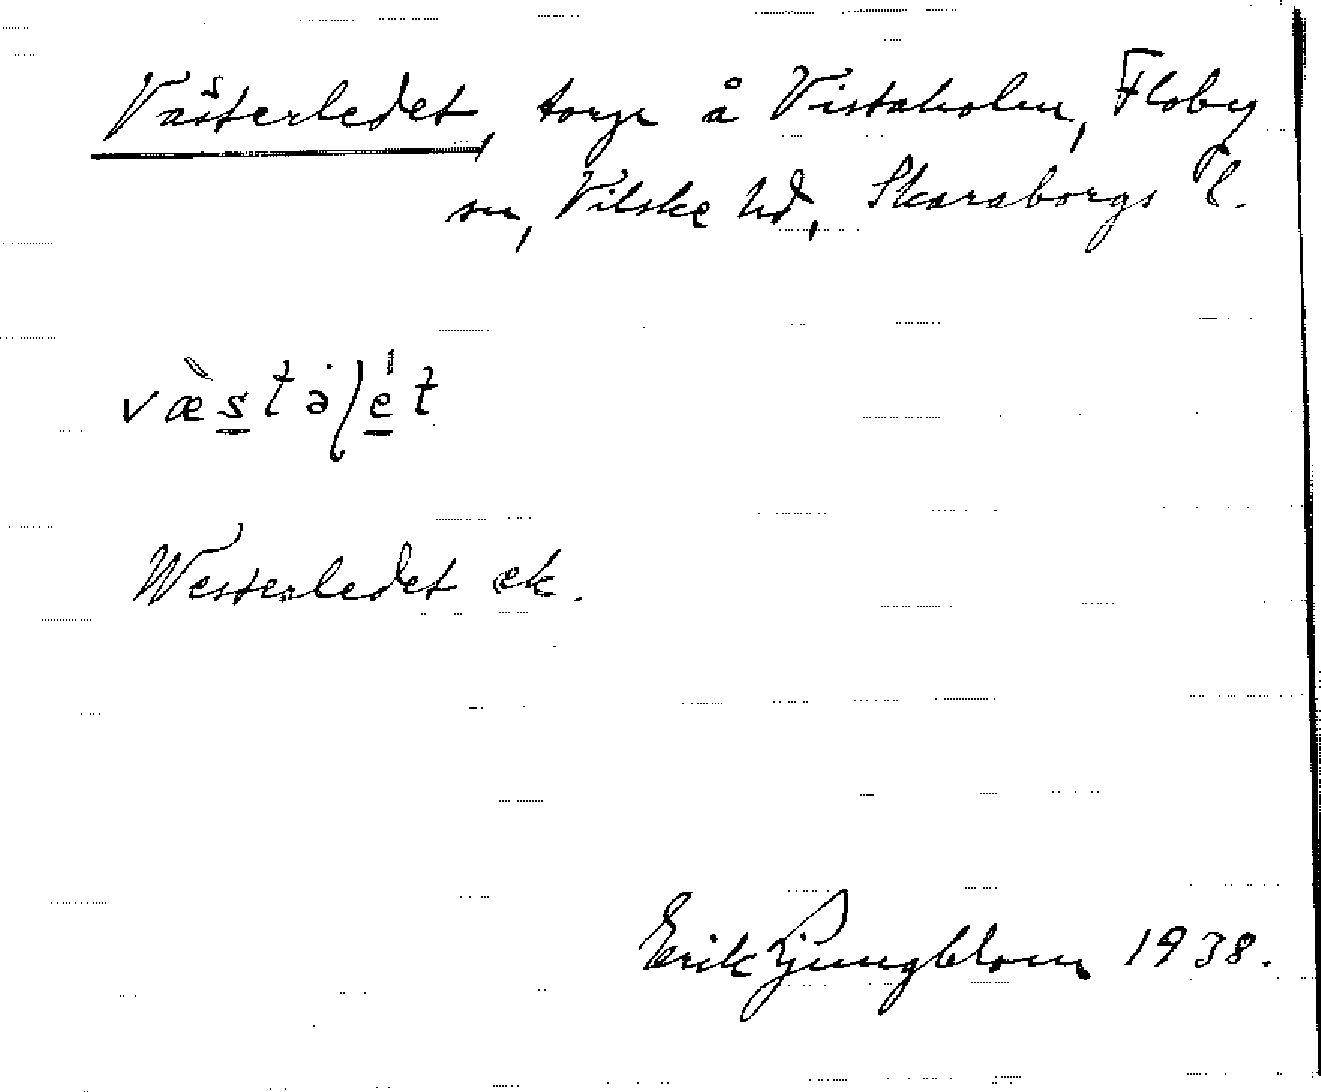 Västerledet, torp å Vistaholm, Floby
sn, Vilske hd, Skaraborgs l.
væstəlet
Westerledet ek.
Erik Ljungblom 1938.